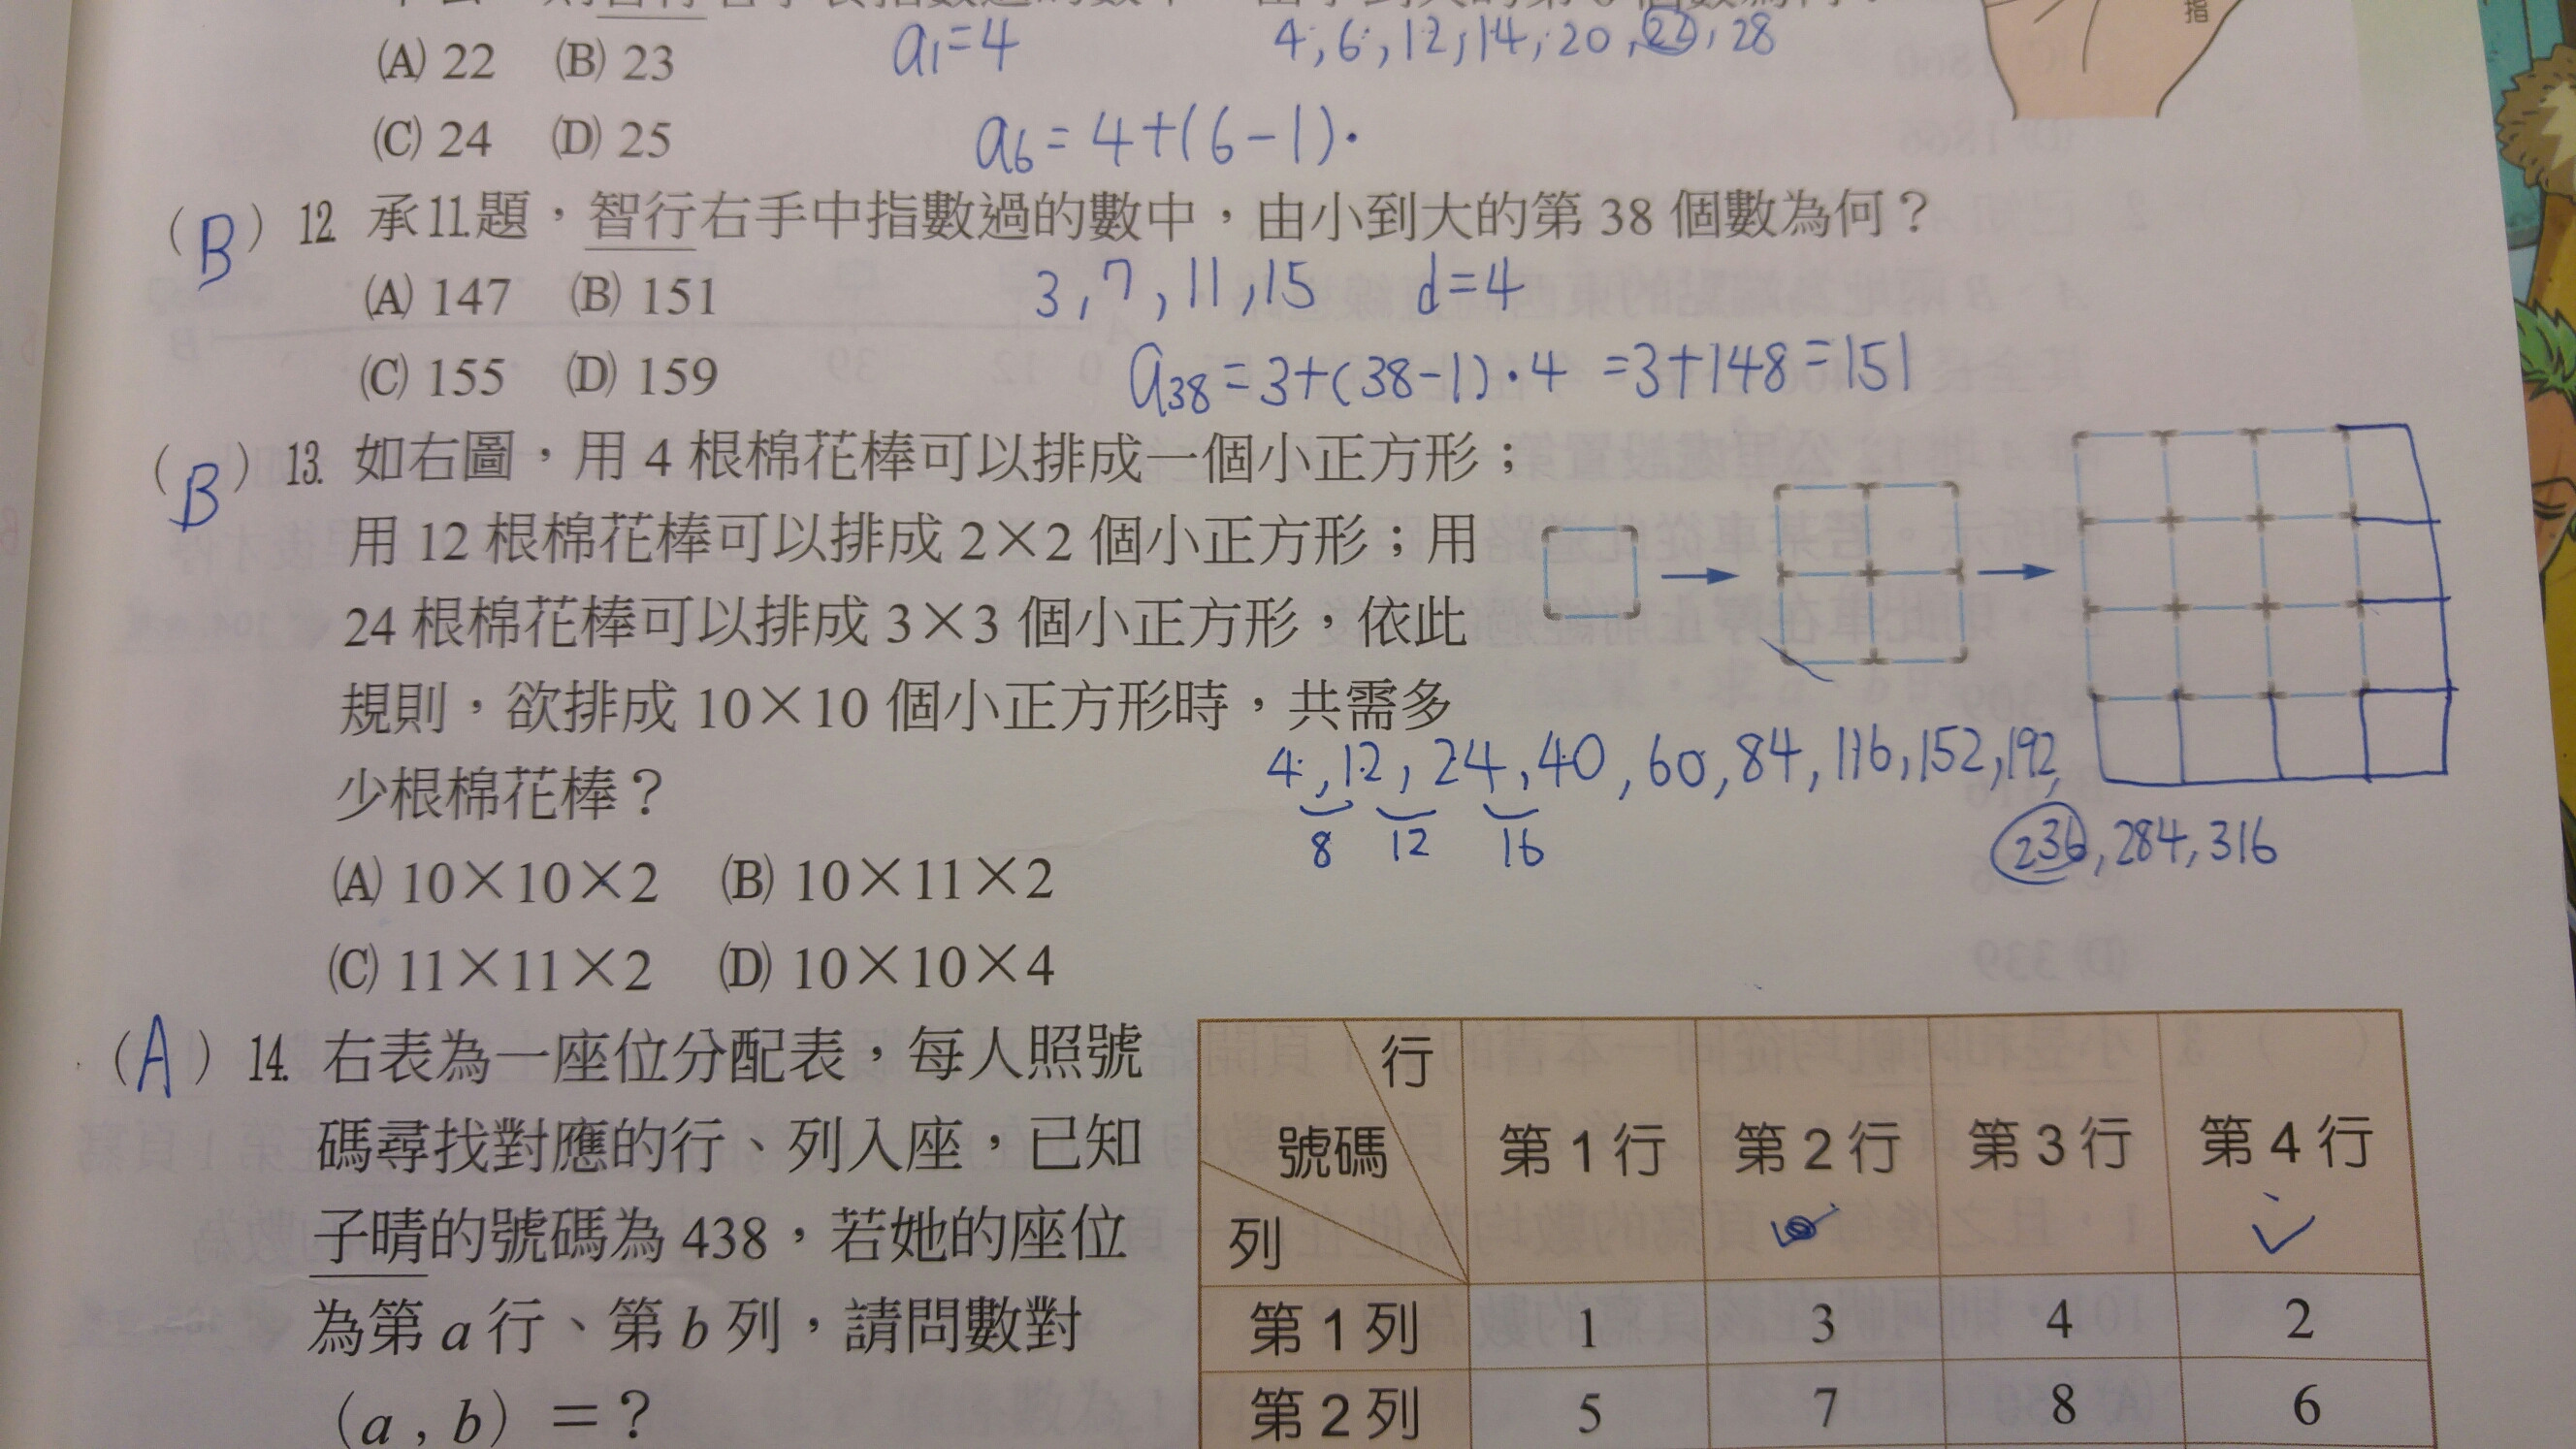 (A) 22 (B) 23
a₁=4
4, 6, 12, 14, 20, 22, 28
(C) 24 (D) 25
a₆= 4+(6-1)·
(B) 12. 承11.題，智行右手中指數過的數中，由小到大的第 38 個數為何？
(A) 147 (B) 151
3, 7, 11, 15 d=4
(C) 155 (D) 159
a₃₈=3+(38-1)·4 =3+148=151
(B) 13. 如右圖，用 4 根棉花棒可以排成一個小正方形；
用 12 根棉花棒可以排成 2×2 個小正方形；用
24 根棉花棒可以排成 3×3 個小正方形，依此
規則，欲排成 10×10 個小正方形時，共需多
少根棉花棒？
4, 12, 24, 40, 60, 84, 116, 152, 192,
8 12 16
236, 284, 316
(A) 10×10×2 (B) 10×11×2
(C) 11×11×2 (D) 10×10×4
(A) 14. 右表為一座位分配表，每人照號
碼尋找對應的行、列入座，已知
子晴的號碼為 438，若她的座位
為第 a 行、第 b 列，請問數對
(a , b) ＝？
行
號碼 第 1 行 第 2 行 第 3 行 第 4 行
列
第 1 列 1 3 4 2
第 2 列 5 7 8 6
指